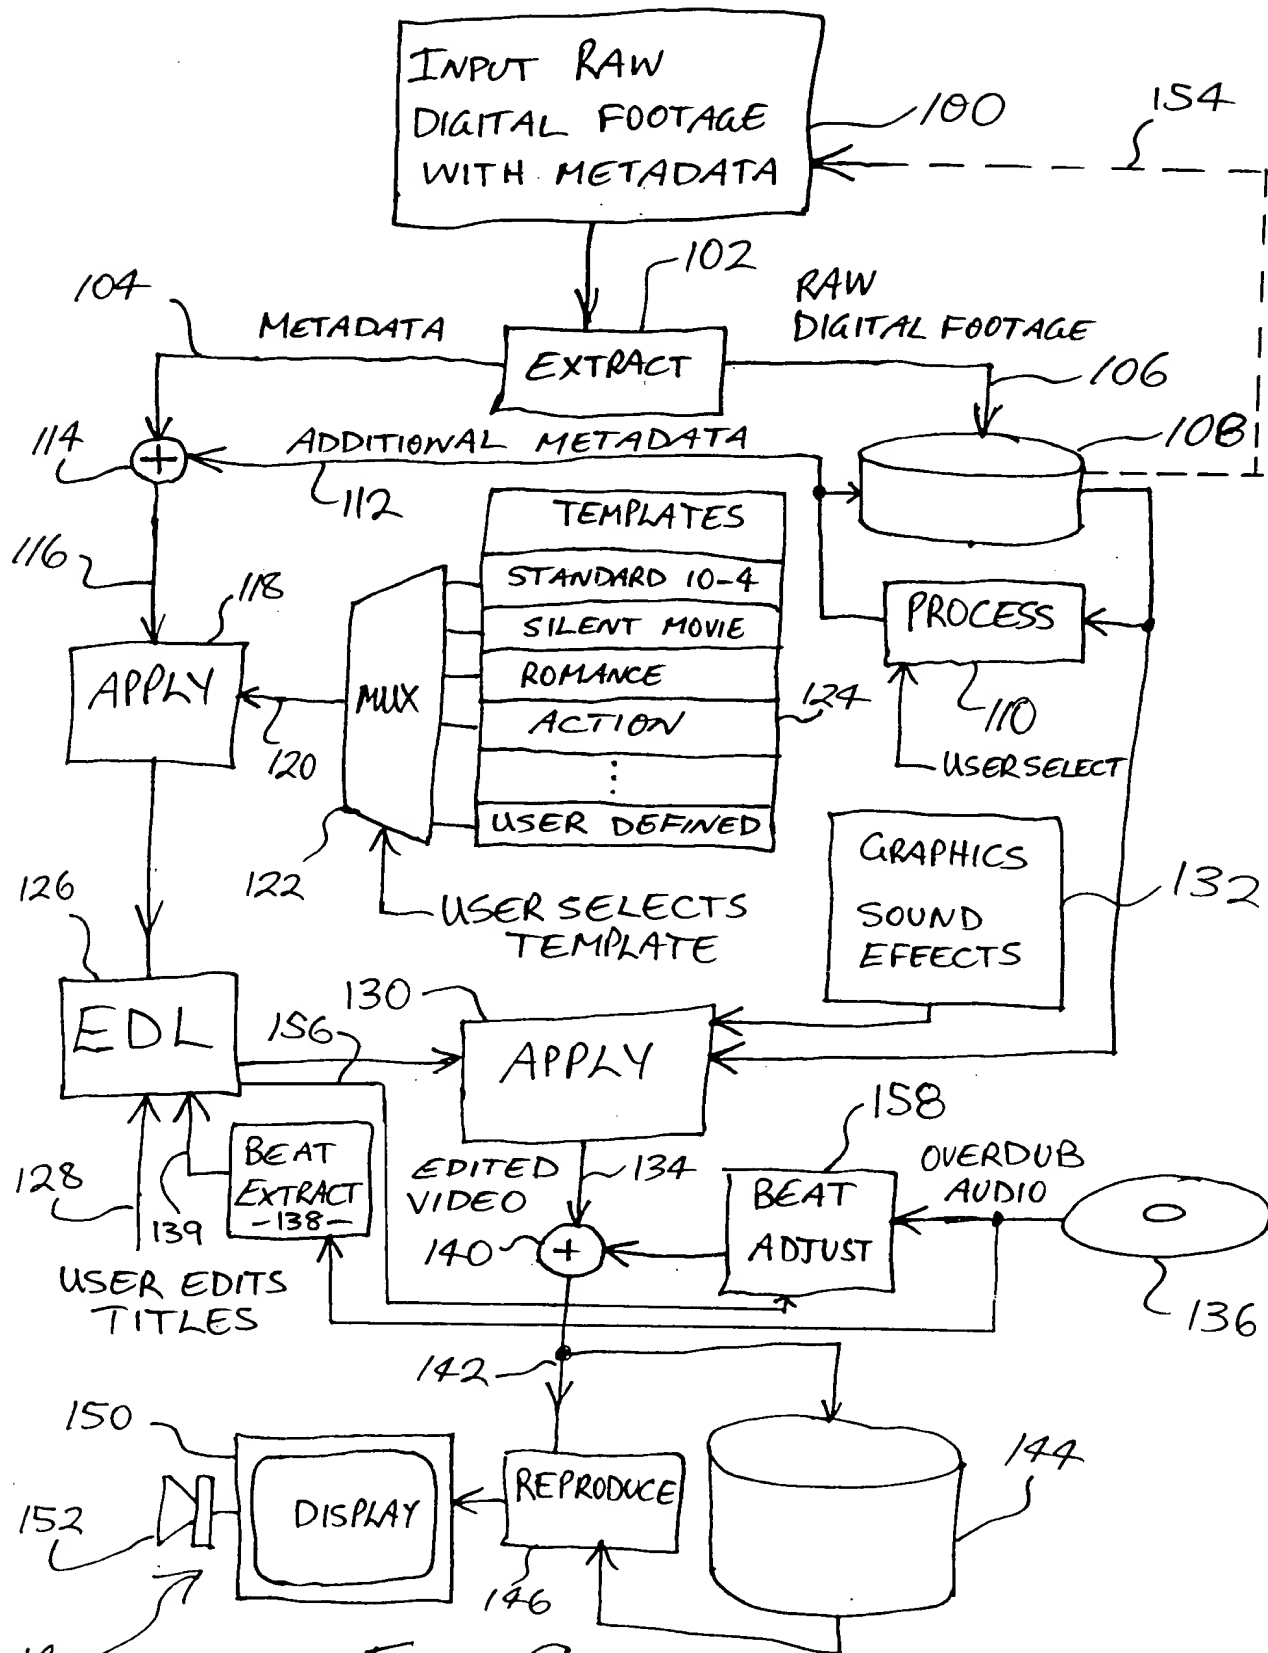 INPUT RAW
DIGITAL FOOTAGE
WITH METADATA
100
154
102
104
METADATA
RAW
DIGITAL FOOTAGE
EXTRACT
106
108
114
ADDITIONAL METADATA
112
116
118
APPLY
120
MUX
122
TEMPLATES
STANDARD 10-4
SILENT MOVIE
ROMANCE
ACTION
⋮
USER DEFINED
124
PROCESS
110
USER SELECT
USER SELECTS
TEMPLATE
GRAPHICS
SOUND
EFFECTS
132
126
EDL
156
130
APPLY
158
128
139
BEAT
EXTRACT
-138-
EDITED
VIDEO
134
140
BEAT
ADJUST
OVERDUB
AUDIO
136
USER EDITS
TITLES
142
150
152
DISPLAY
REPRODUCE
146
144